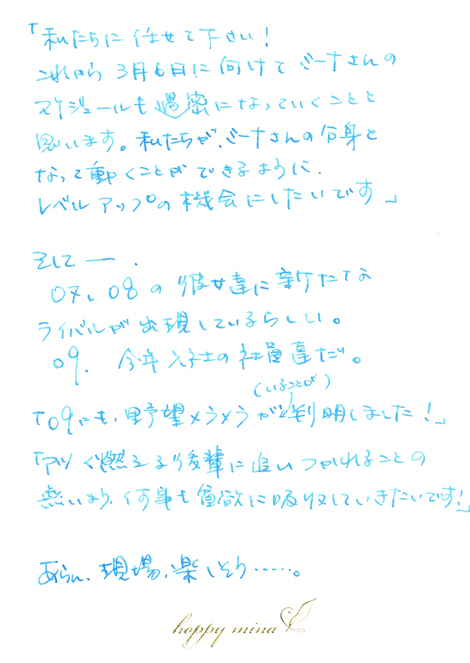 「私たちに任せて下さい！
これから3月6日に向けてミーナさんの
スケジュールも過密になっていくことと
思います。私たちが、ミーナさんの分身と
なって動くことができるように、
レベルアップの機会にしたいです」
そして——．
07、08の彼女達に新たな
ライバルが出現しているらしい。
09．今年入社の社員達だ。
(いることが)
「09にも、野望メラメラが判明しました！」
「アツく燃える後輩に追いつかれることの
無いよう、何事も貪欲に吸収していきたいです！」
あらん、現場、楽しそう……。
happy mina